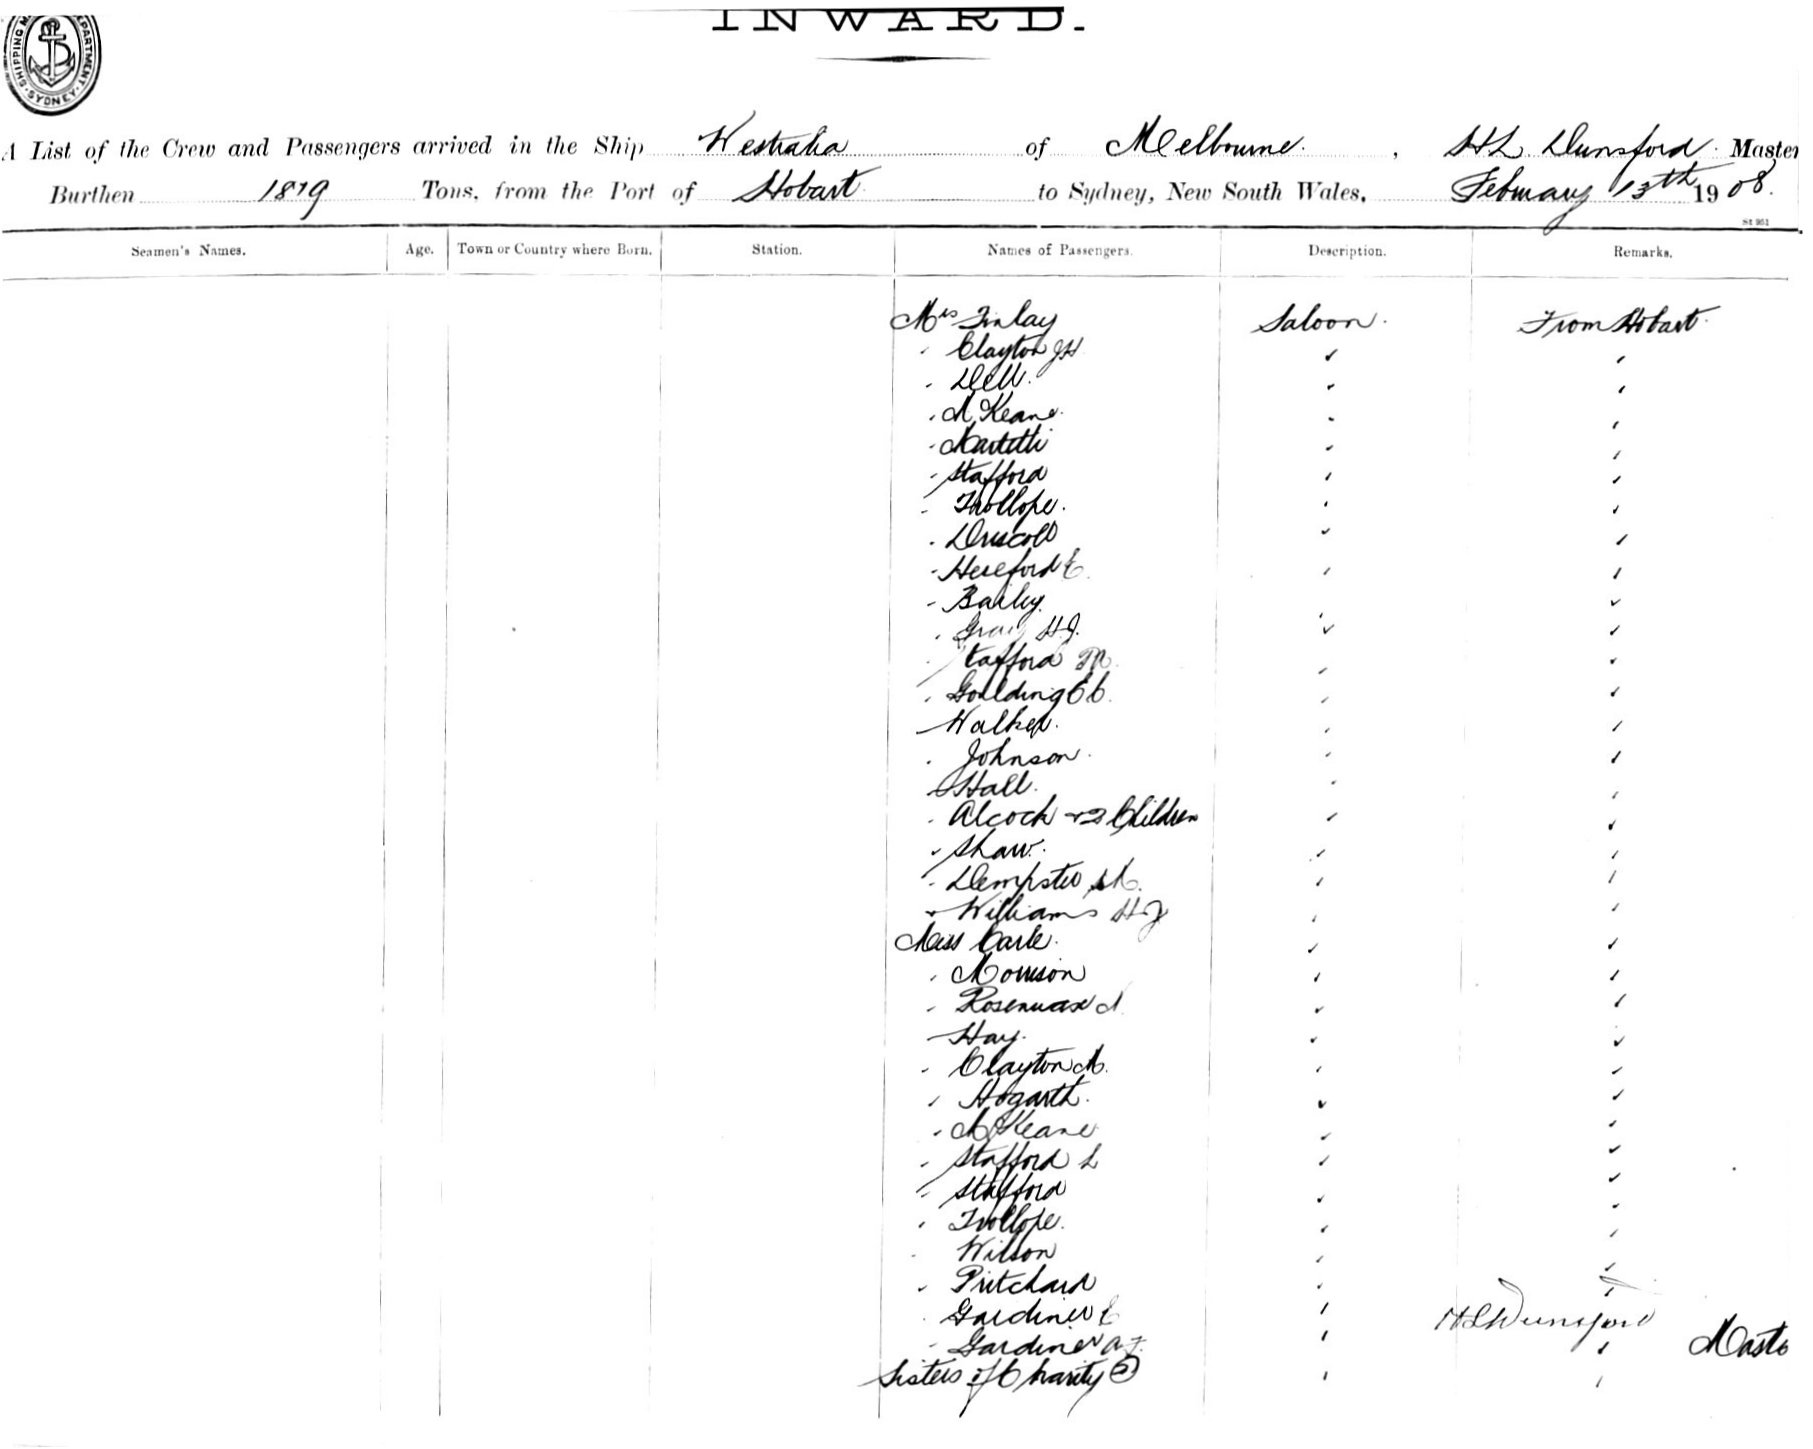 INWARD.
SHIPPING M DEPARTMENT. SYDNEY.
A List of the Crew and Passengers arrived in the Ship Westralia of Melbourne. , H L Dunsford. Master
Burthen 1819 Tons, from the Port of Hobart to Sydney, New South Wales, February 13th 1908.
St 951
Seamen's Names. Age. Town or Country where Born. Station. Names of Passengers. Description. Remarks.
Mrs Finlay Saloon. From Hobart.
" Clayton JH " "
" Dell. " "
" McKeane. " "
" " "
" Stafford " "
" Trollope. " "
" Driscoll " "
" Hereford E. " "
" Bailey. " "
" Gray H.J. " "
" Stafford M. " "
" Goulding C C. " "
" Walker. " "
" Johnson. " "
" Hall. " "
" Alcock + 2 Children " "
" Shaw. " "
" Dempster " "
" Williams H J " "
Miss Earle. " "
" Morrison " "
" Rosenwax " "
" Hay. " "
" Clayton M. " "
" Hogarth. " "
" McKeane " "
" Stafford L " "
" Stafford " "
" Trollope. " "
" Wilson " "
" Pritchard " "
" Gardiner E " H L Dunsford
" Gardiner A.F. " " Maste
Sisters of Charity (2) " "